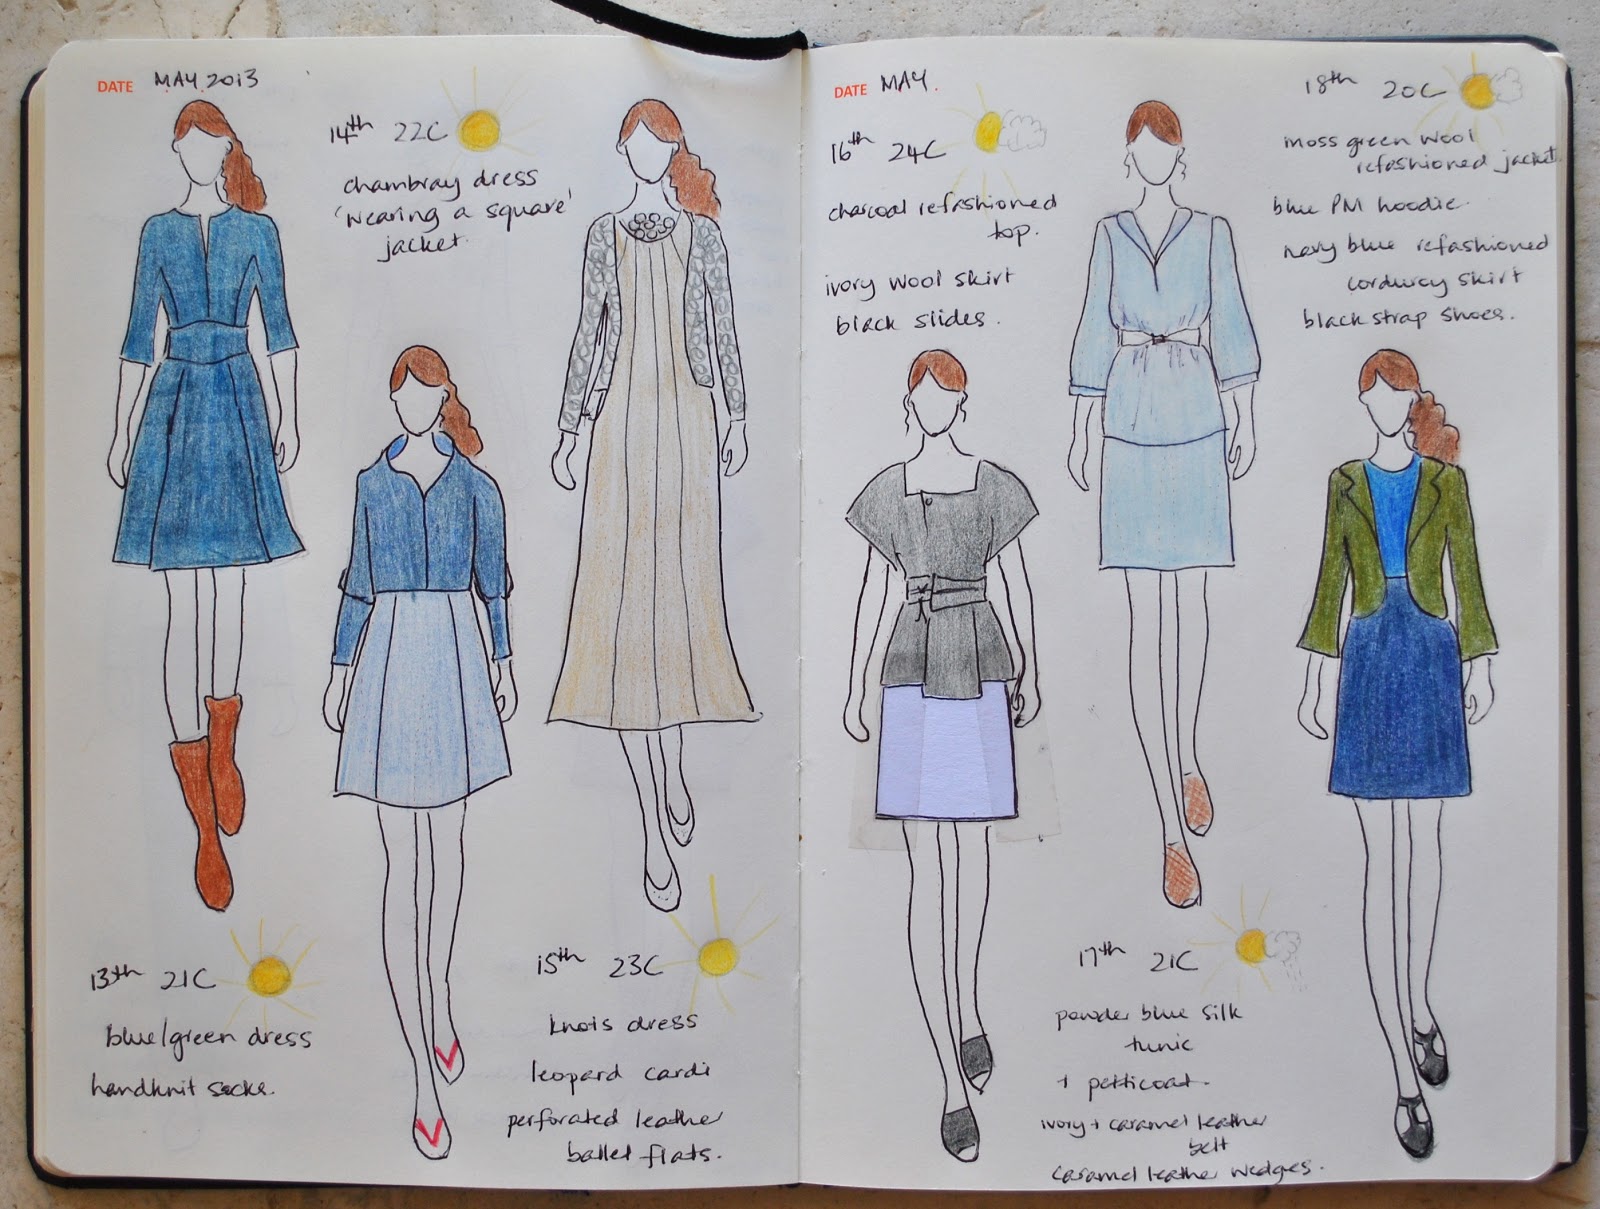 DATE MAY 2013
14th 22C
chambray dress
'wearing a square'
jacket.
13th 21C
blue/green dress
handknit socks.
15th 23C
knots dress
leopard cardi
perforated leather
ballet flats.
DATE MAY.
16th 24C
charcoal refashioned
top.
ivory wool skirt
black slides.
18th 20C
moss green wool
refashioned jacket
blue PM hoodie.
navy blue refashioned
corduroy skirt
black strap shoes.
17th 21C
powder blue silk
tunic
+ petticoat.
ivory + caramel leather
belt
caramel leather wedges.